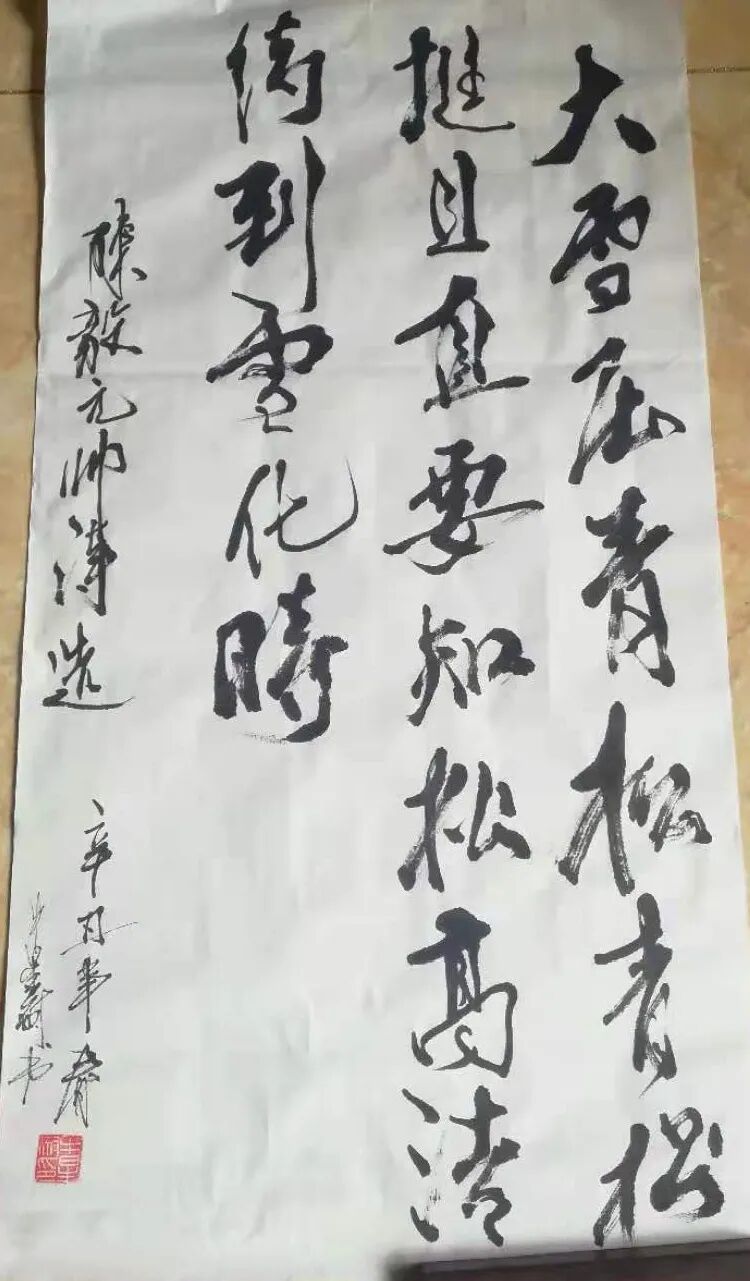 大雪压青松青松
挺且直要知松高洁
待到雪化時
陳毅元帅诗選
辛丑年春
书